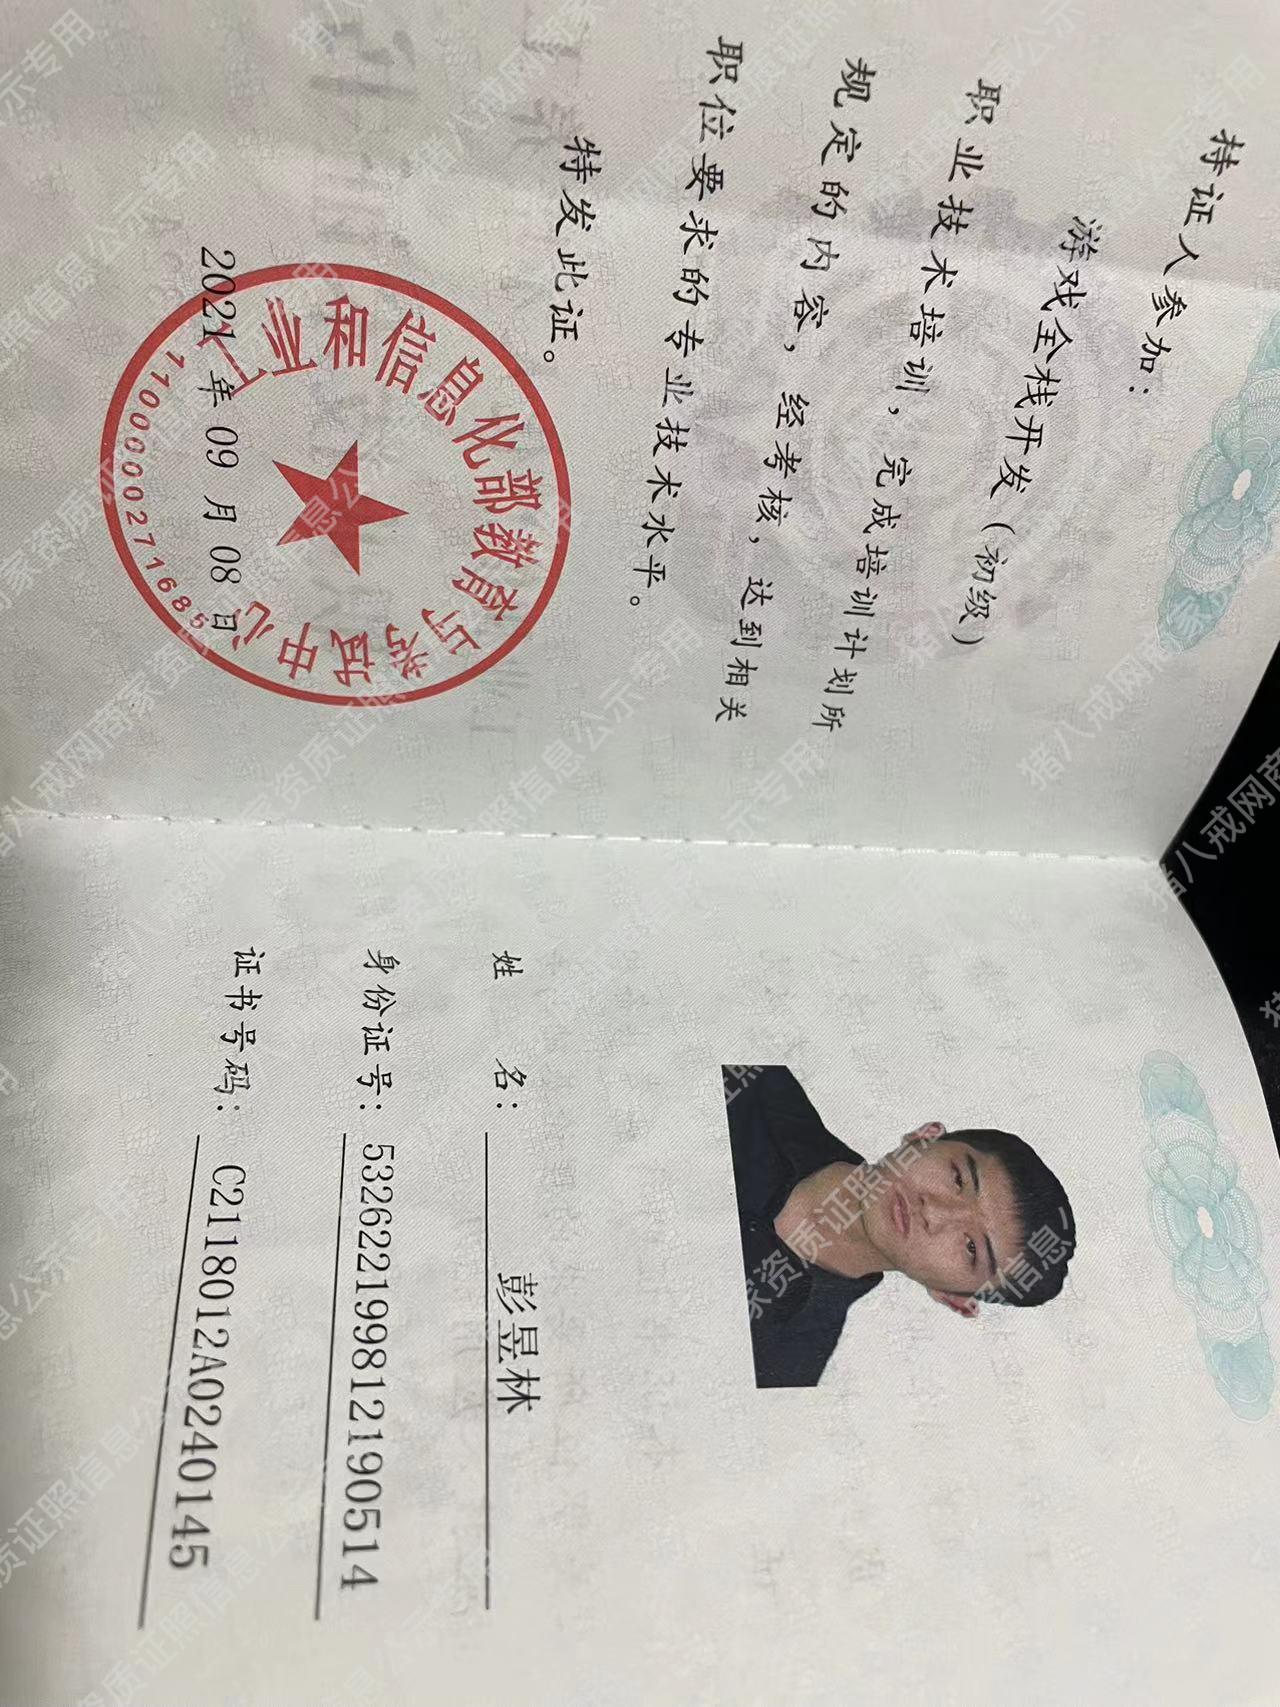 持证人参加：
游戏全栈开发（初级）
职业技术培训，完成培训计划所
规定的内容，经考核，达到相关
职位要求的专业技术水平。
特发此证。
工业和信息化部教育与考试中心
2021年09月08日
1100000271685
姓 名：彭昱林
身份证号：532622199812190514
证书号码：C2118012A0240145
猪八戒网商家资质证照信息公示专用